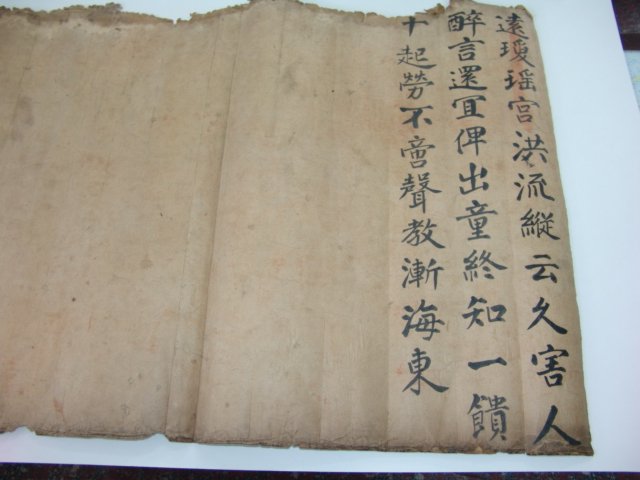 遠瓊瑶宫洪流縱云久害人
醉言還冝俾出童終知一饋
十起勞不啻聲教漸海東